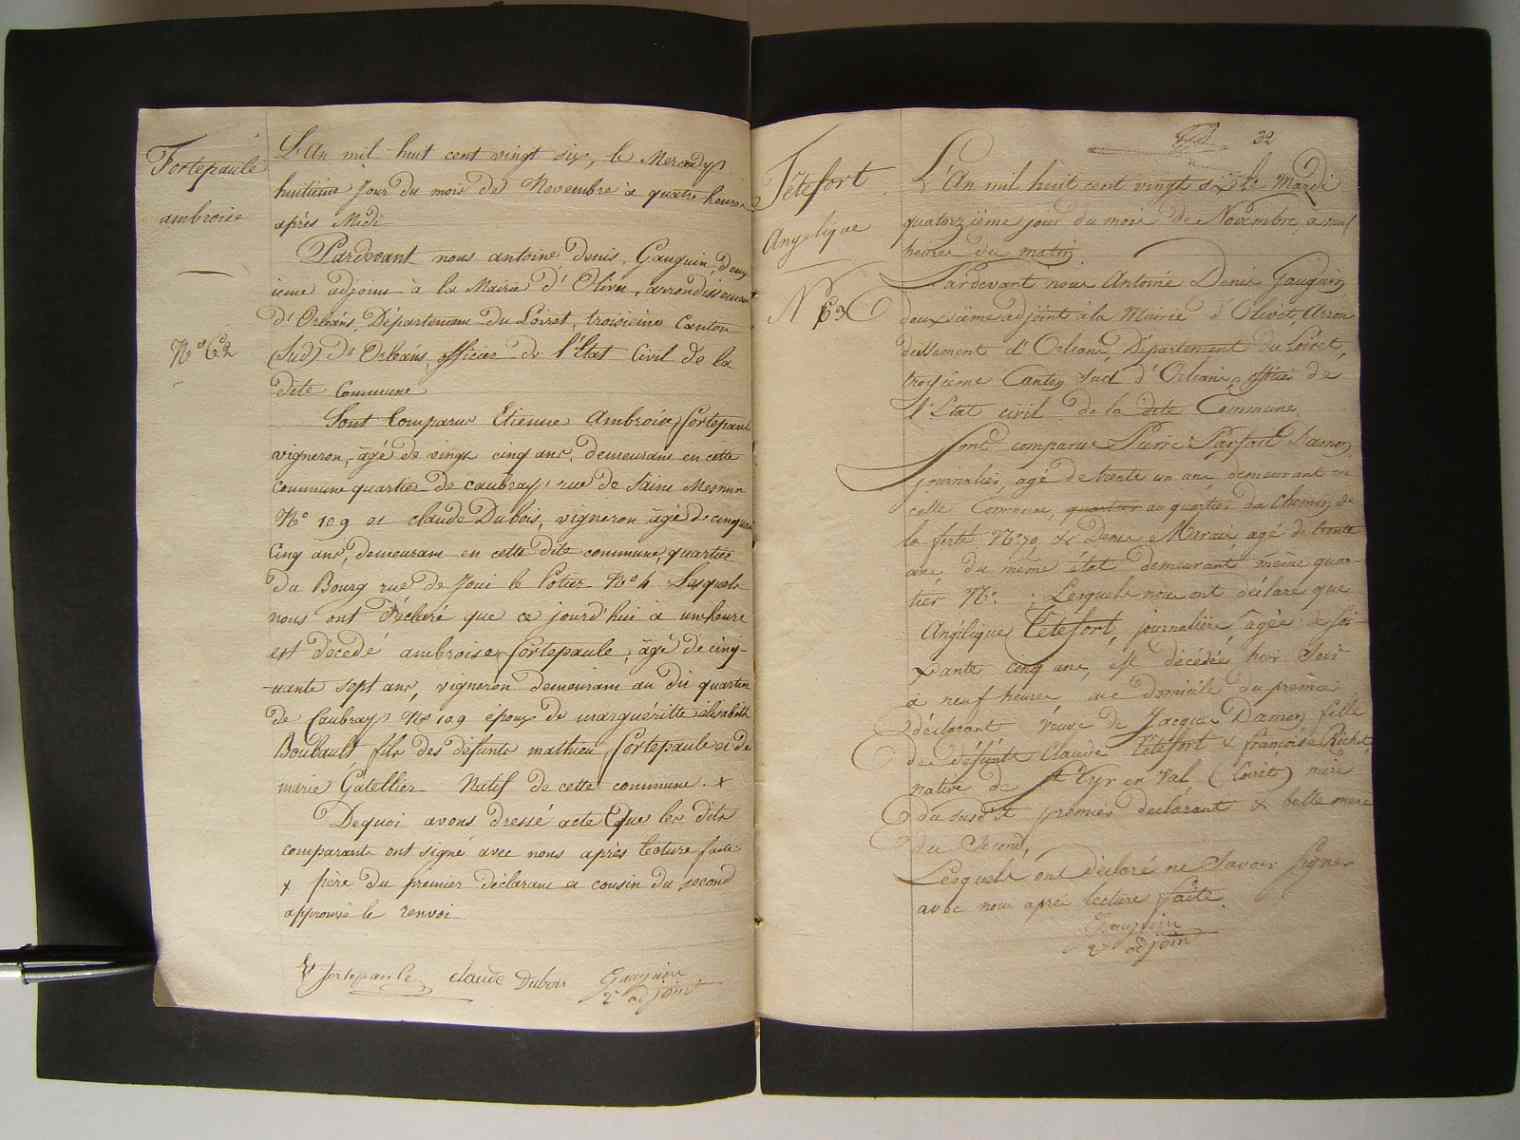 Fortepaule
ambroise
N° 62
L'An mil huit cent vingt six, le Mercredy
huitieme Jour du mois de Novembre à quatre heures
après Midi
Pardevant nous antoine denis Gauguin, deux
ieme adjoint à la Mairie d'Olivet, arrondissement
d'Orléans, Département du Loiret, troisieme Canton
(Sud) d'Orléans, officier de l'Etat Civil de la
dite Commune
Sont Comparus Etienne Ambroise fortepaule
vigneron, âgé de vingt cinq ans, demeurant en cette
commune quartier de caubray, rue de saint Mesmin
N° 109 et claude Dubois, vigneron âgé de cinquante
Cinq ans, demeurant en cette dite commune, quartier
du Bourg rue de Joui le Potier N° 4 Lesquels
nous ont Déclaré que ce jourd'hui à une heure
est décedé ambroise fortepaule, âgé de cinq-
uante sept ans, vigneron demeurant au dit quartier
de Caubray N° 109 époux de marguéritte élisabeth
Boubault fils des défunts mathieu fortepaule et de
marie Gatellier Natif de cette commune. x
De quoi avons dressé acte Que les dits
comparants ont signé avec nous après lecture faite
x père du premier déclarant et cousin du second
approuvé le renvoi
fortepaule claude Dubois Gauguin
2e adjoint
32
Tétefort
Angélique
N 63
L'An mil huit cent vingt six le Mardi
quatorzième jour du mois de Novembre, à neuf
heures du matin.
Pardevant nous Antoine Denis Gauguin
deuxième adjoint à la Mairie d'Olivet, Arron
dissement d'Orléans, Département du Loiret,
troisième Canton Sud d'Orléans, officier de
l'Etat civil de la dite Commune.
Sont comparus Pierre Parfait Damon,
journalier, agé de trente un ans, demeurant en
cette Commune, quartier au quartier du Chemin de
la ferté N° 79 & Denis Mervais agé de trente
ans, du même état demeurant même quar-
tier N° . Lesquels nous ont déclaré que
Angélique Tétefort, journalière agée de soi-
xante cinq ans, est décédée hier soir
à neuf heures au domicile du premier
déclarant veuve de Jacques Damon, fille
de défunts Claude Tétefort & françoise Rochet
native de St Cyr en Val (Loiret) mère
du susdit premier déclarant & belle mère
du Second,
Lesquels ont déclaré ne Savoir Signer
avec nous après lecture faite.
Gauguin
2e adjoint